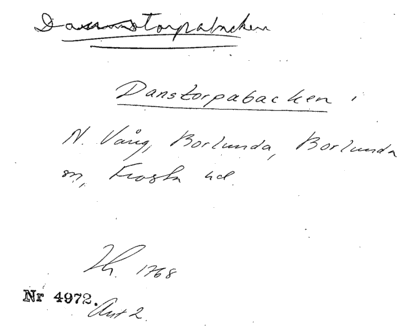 Danstorpabacken
Danstorpabacken
N. Vång, Borlunda, Borlunda
sn, Frosta hd.
1768
Nr 4972.
Ant 2.